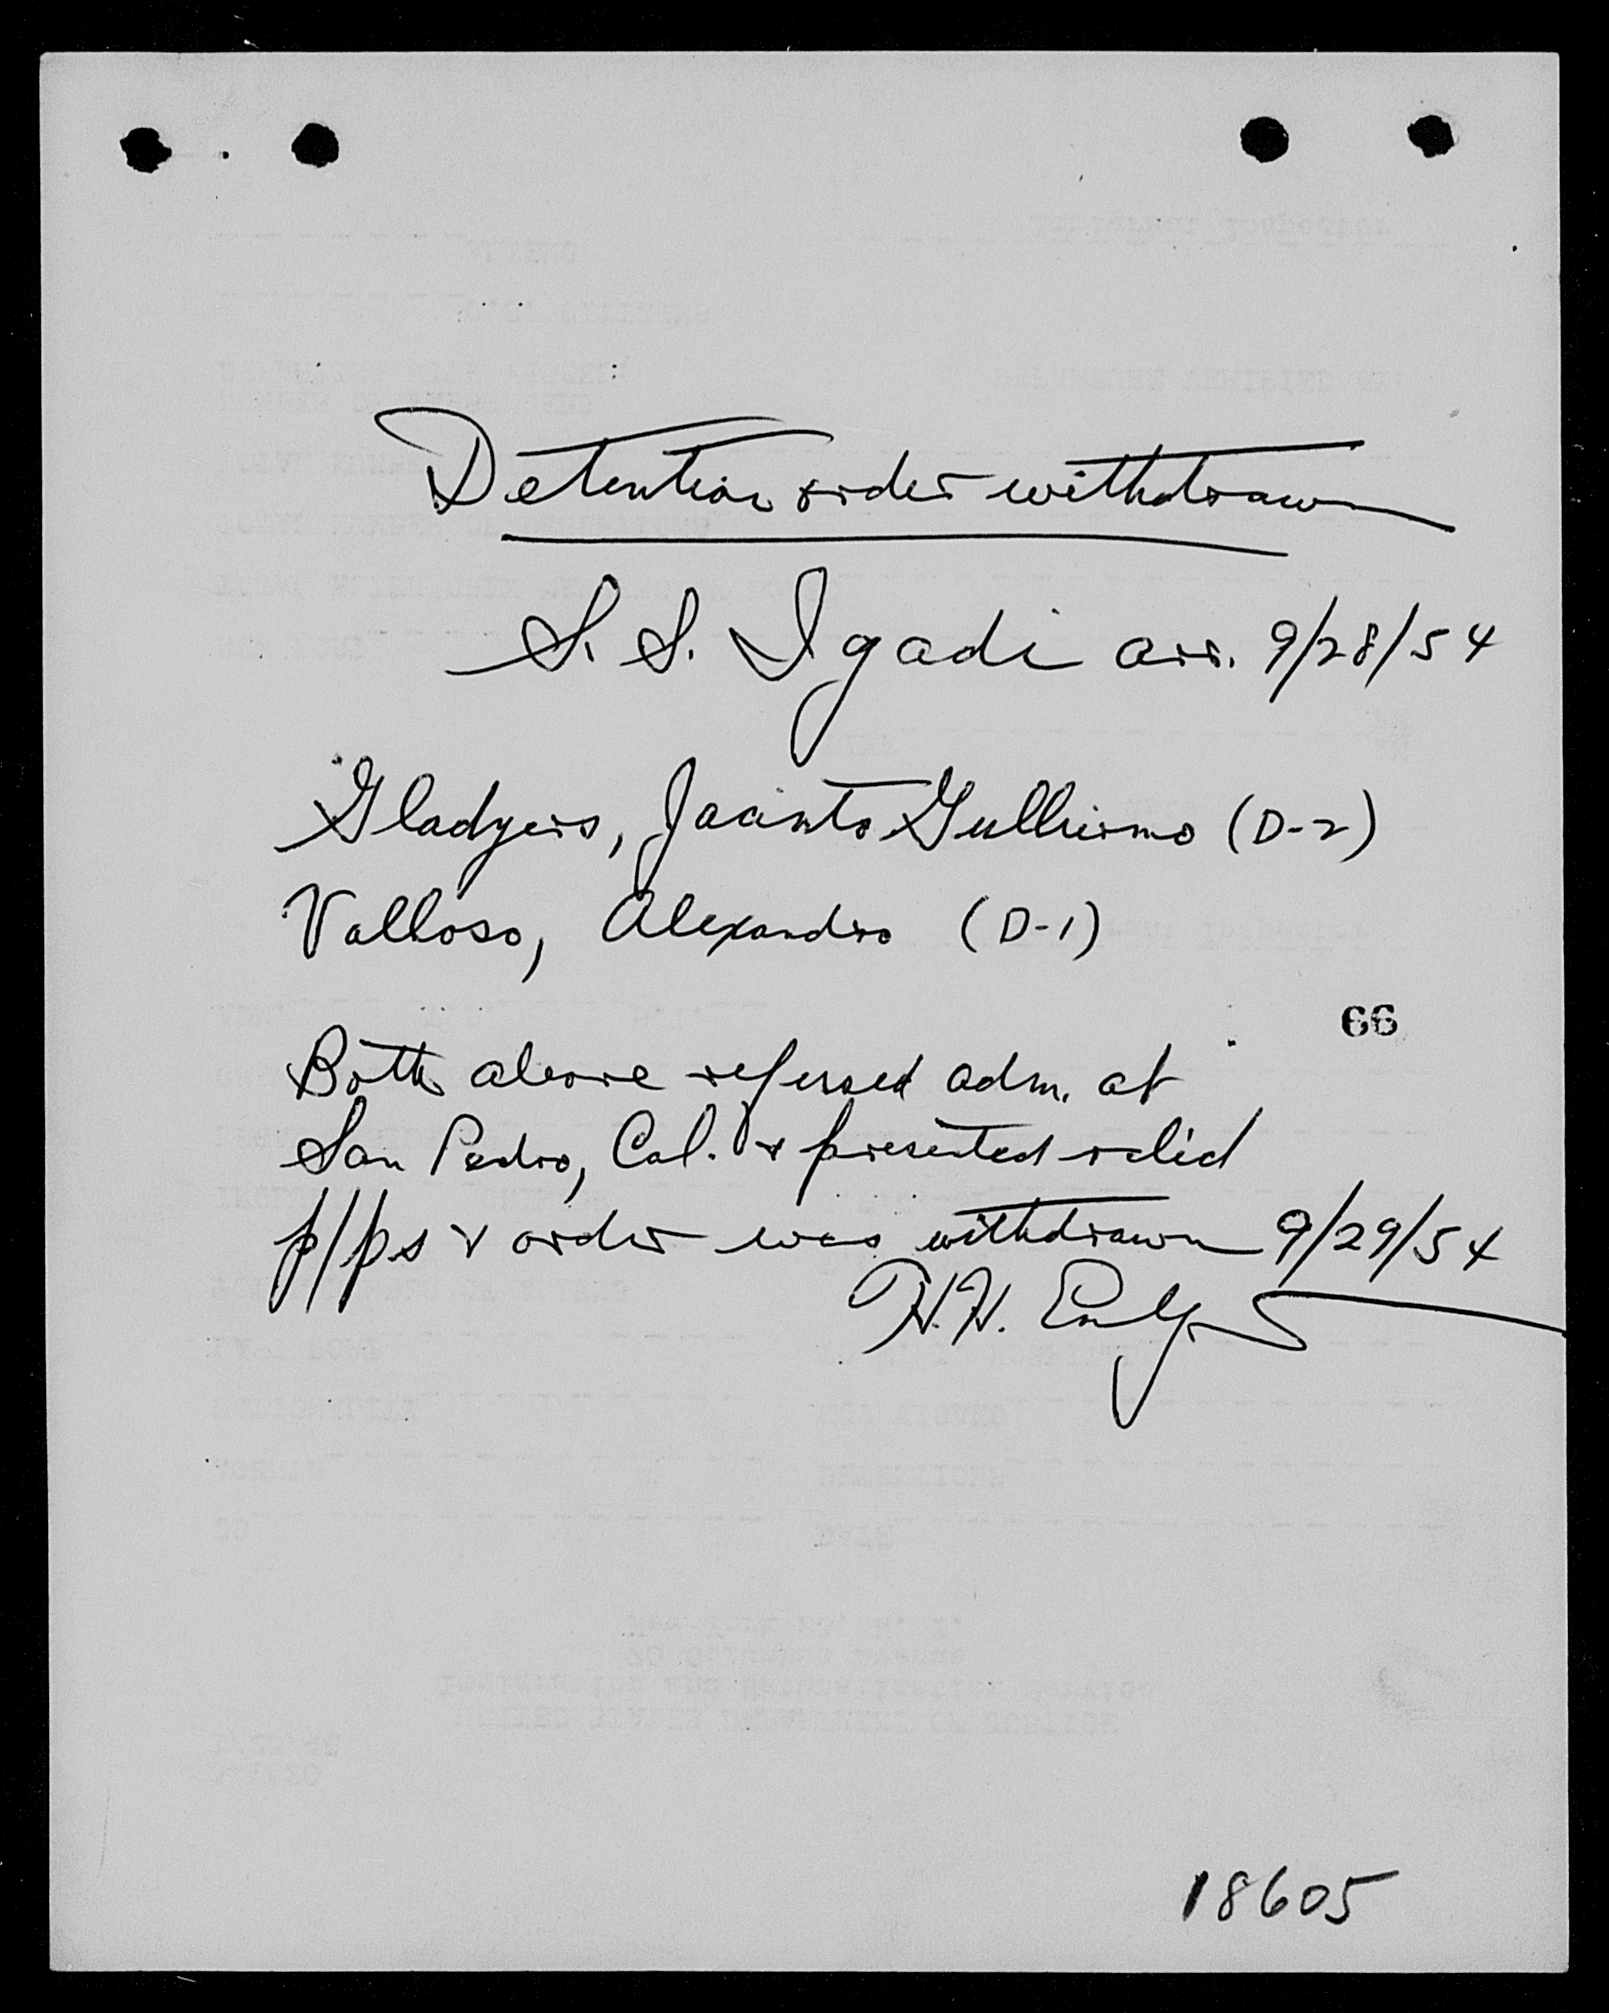 Detention order withdrawn
S. S. Igadi arr. 9/28/54
Gladyers, Jacinto Gullermo (D-2)
Valloso, Alexandro (D-1)
66
Both above refused adm. at
San Pedro, Cal. & presented valid
p/ps & order was withdrawn 9/29/54
H.H.
18605